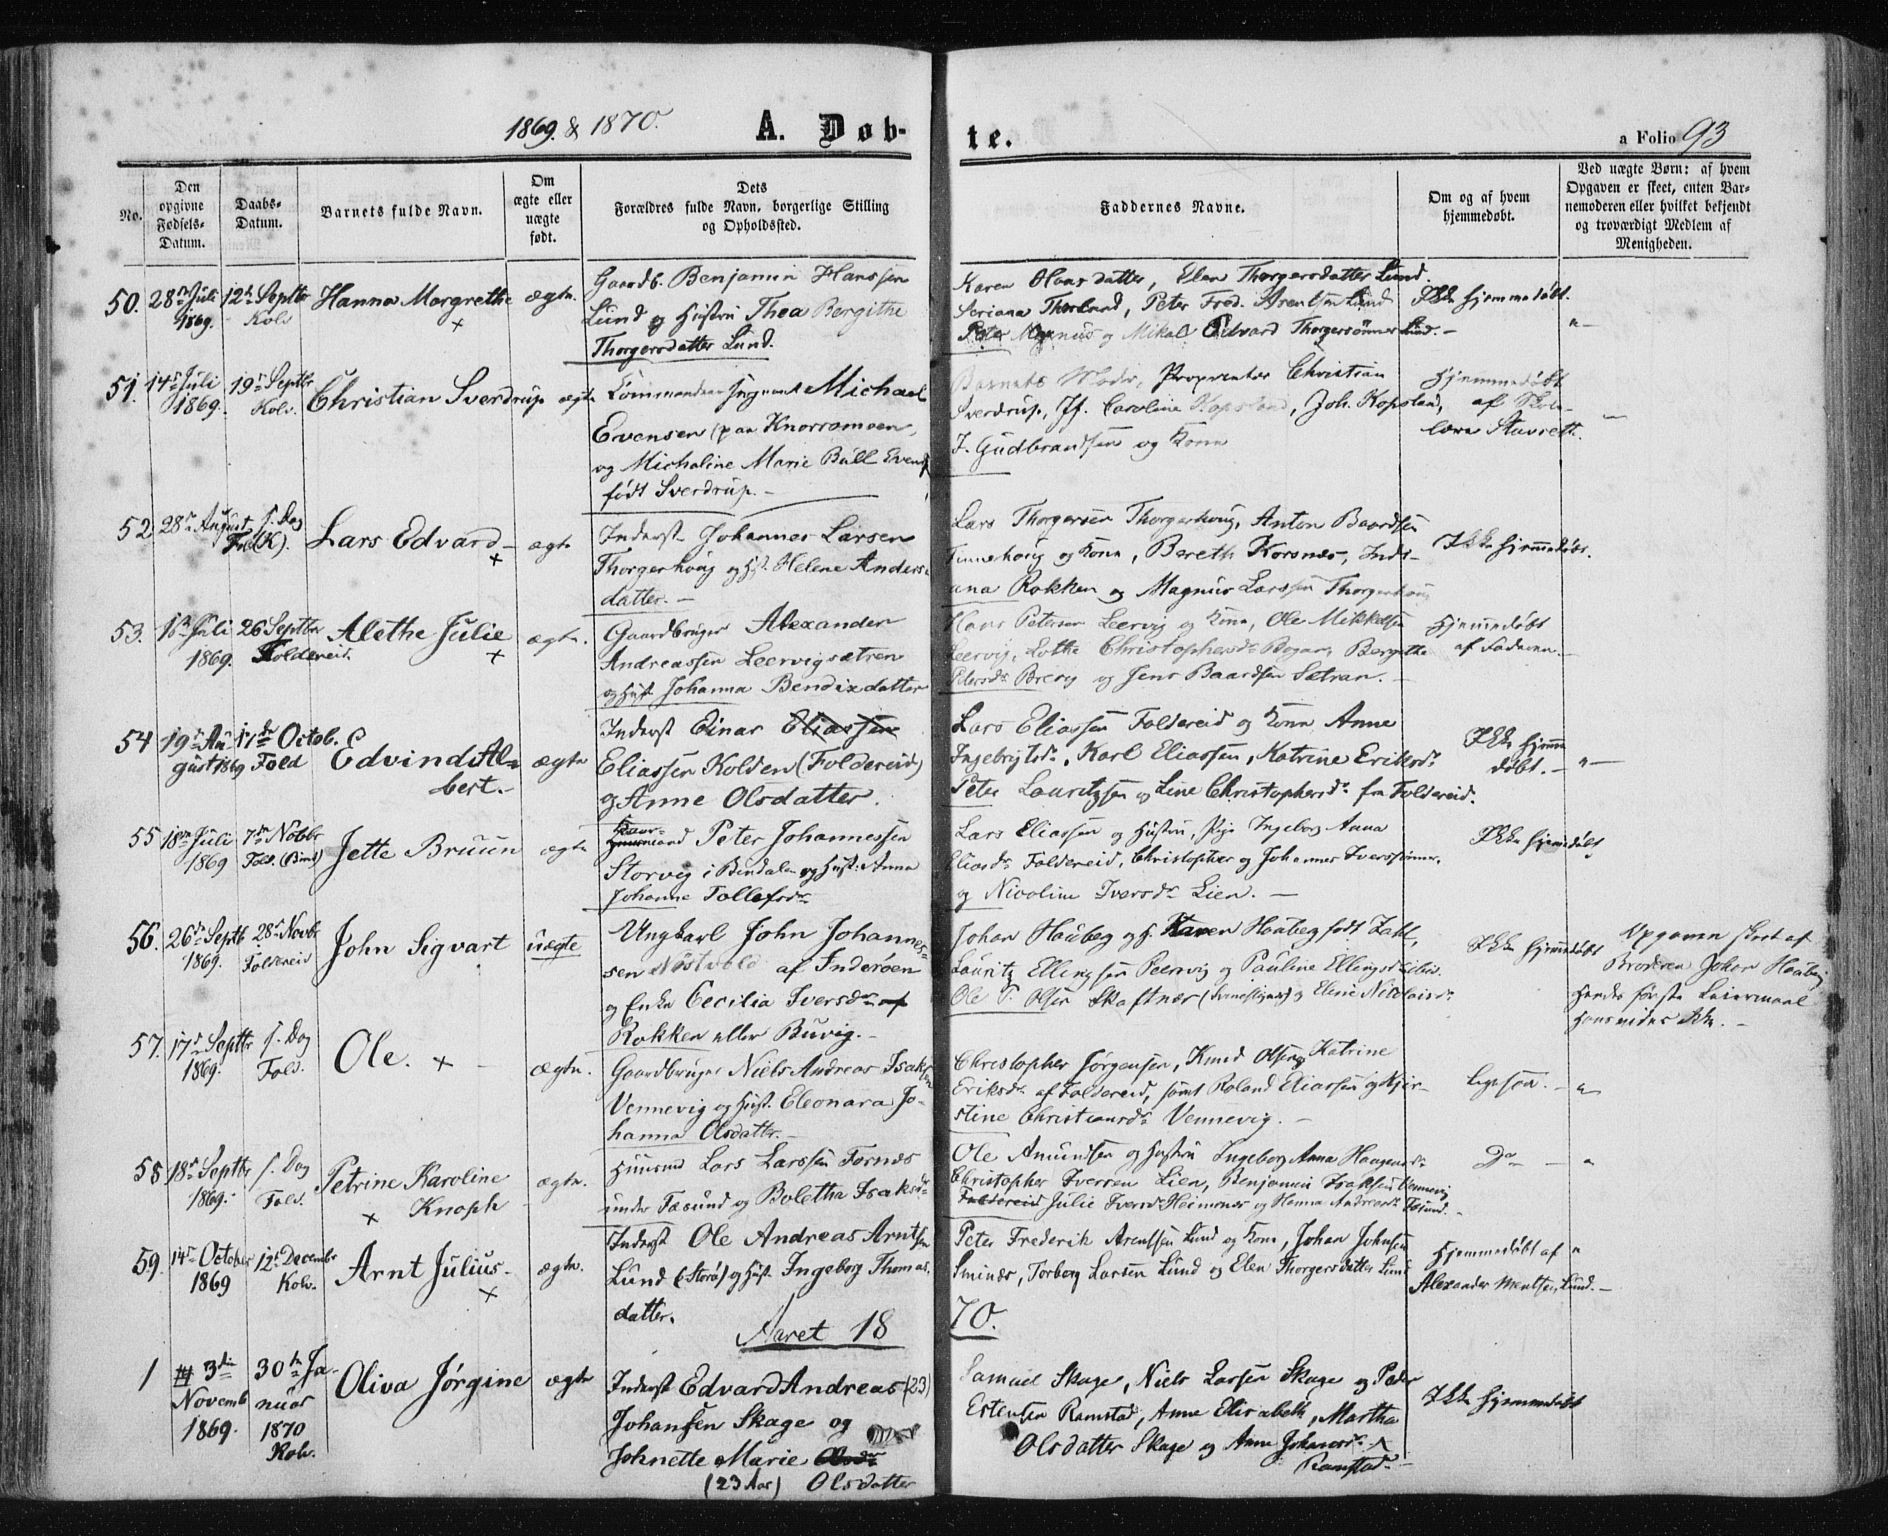 1869 & 1870.
A. Døb-
te.
a Folio 93
No.
Den opgivne Fødsels-Datum.
Daabs-Datum.
Barnets fulde Navn.
Om ægte eller uægte født.
Dets Forældres fulde Navn, borgerlige Stilling og Opholdssted.
Faddernes Navne.
Om og af hvem hjemmedøbt.
Ved uægte Børn: af hvem Opgaven er skeet, enten Barnemoderen eller hvilket bekjendt og troværdigt Medlem af Menigheden.
50. 28de Juli 1869. 12te Septbr Kolv Hanna Margrethe × ægte.
Gaardb. Benjamin Hanssen
Lund og Hustru Thea Bergithe
Thorgersdatter Lund.
Karen Hansdatter, Elen Thorgersdatter Lund.
Seriana, Peter Fred. Arentsen Lund
Peter Magnus og Mikal Edvard Thorgersønner Lund. –
Ikke hjemmedøbt. "–
51. 14de Juli 1869. 19de Septbr Kolv. Christian Sverdrup ægte
Michael
Evensen (paa Knorramoen,
og Michaline Marie Bull Evens
født Sverdrup. –
Barnets Moder, Proprietær Christian
Sverdrup, Jf. Caroline Kopsland, Joh. Kopsland,
J. Gudbrandsen og Kone
Hjemmedøbt
af Skole-
lærer
52 28de August s. Dag Fold(K). Lars Edvard – × ægte
Inderst Johannes Larsen
Thorgershoug og Hst. Helene Anders-
datter. –
Lars Thorgersen Thorgershoug, Anton Baardsen
Finnehoug og Kone, Bereth Korsnæs, Indi-
ana Rokken og Magnus Larsen Thorgershoug
Ikke hjemmedøbt.
53. 18de Juli 1869. 26 Septbr Foldereid. Alethe Julie × ægte.
Gaardbruger Alexander
Andreassen Leervigsætren
og Hust Johanna Bendixdatter
Hans Petersen Leervig og Kone, Ole Mikkelsen
Leervig, Lotha Christophersdr., Bergitha
Petersdr. og Jens Baardsen Sætran. –
Hjemmedøbt
af Faderen. –
54 19de August 1869 17de Octob. Fold Edvind Al-
bert. – ægte
Inderst Einar Eliassen
Eliassen Kolden (Foldereid)
og Anne Olsdatter.
Lars Eliassen Foldereid og Kone Anne
Ingebrigtsdr., Karl Eliassen, Katrine Eriksdr.
Peter Lauritzsen og Line Christophersdr. fra Foldereid.
Ikke hjemme
døbt. – "–
55 18de Juli 1869 7de Novbr Fold. (Bind) Jette Bruun ægte
Huusmand Peter Johannessen
Storvig i Bindalen og Hust: Anna
Johanne Tollefsdr.
Lars Eliassen og Hustru, Pige Ingeborg Anna
Eliasdr Foldereid, Christopher og Johannes Iverssønner,
og Nicoline Iversdr Lien. –
Ikke hjemmedøbt
56. 26de Septb 1869. 28de Novbr Foldereid John Sigvart uægte
Ungkarl John Johannes-
sen af Inderøen
og Enke Cecilia Iversdr. af
Rokken eller Buvig. –
Johan Hauberg og H. Karen Hauberg født,
Lauritz Ellingsen Peervig og Pauline Ellingsd
Ole P. Olsen Skaftnæs og Eline Nicolaisdr.
Ikke hjemmedøbt
Opgaven skeet af
Broderen Johan Hauberg
Hendes første Leiermaal
57. 17de Septbr 1869. s. Dag Fold. Ole. × – ægte.
Gaardbruger Niels Andreas Isaksen
Vennevig og Hust. Eleonora Jo-
hanna Olsdatter. –
Christopher Jørgensen, Knud Olsen, Katrine
Eriksdr. af Foldereid, samt Roland Eliassen og Kjir-
stine Christiansdr. Vennevig. –
Ligesaa. – "
58 18de Septbr 1869. s. Dag Fold. Petrine Karoline
× Knoph ægte.
Huusmd Lars Larssen Fornæs
under Fæsund og Boletha Isaksdr.
Ole Amundsen og Hustru Ingeborg Anna Haagensdr.
Christopher Iversen Lien, Benjamin Isaksen Vennevig
Foldereid Julie Iversdr Heimnes og Hanna Andreasdr.
Do – "
59. 14de October 1869 12te Decembr Kolv. Arnt Julius. × ægte.
Inderst Ole Andreas Arntsen
Lund (Storø) og Hust Ingeborg Thomas-
datter.
Peter Frederik Arentsen Lund og Kone, Johan Johnsen
Smines, Torborg Larsen Lund og Elen Thorgersdatter Lund
Hjemmedøbt af "
Alexander Mentsen, Lund. –
Aaret 18
70.
1 3die Novemb 1869. 30te Januar 1870 Kolv. Oliva Jørgine ægte
Inderst Edvard Andreas (23)
Johansen Skage og
Johnette Marie Olsdr
(23 Aar) Olsdatter
Samuel Skage, Niels Larsen Skage og Peder
Estensen Ramstad, Anne Elisabeth, Martha
Olsdatter Skage og Anne Johansdr.
Ramstad –
Ikke hjemmedøbt